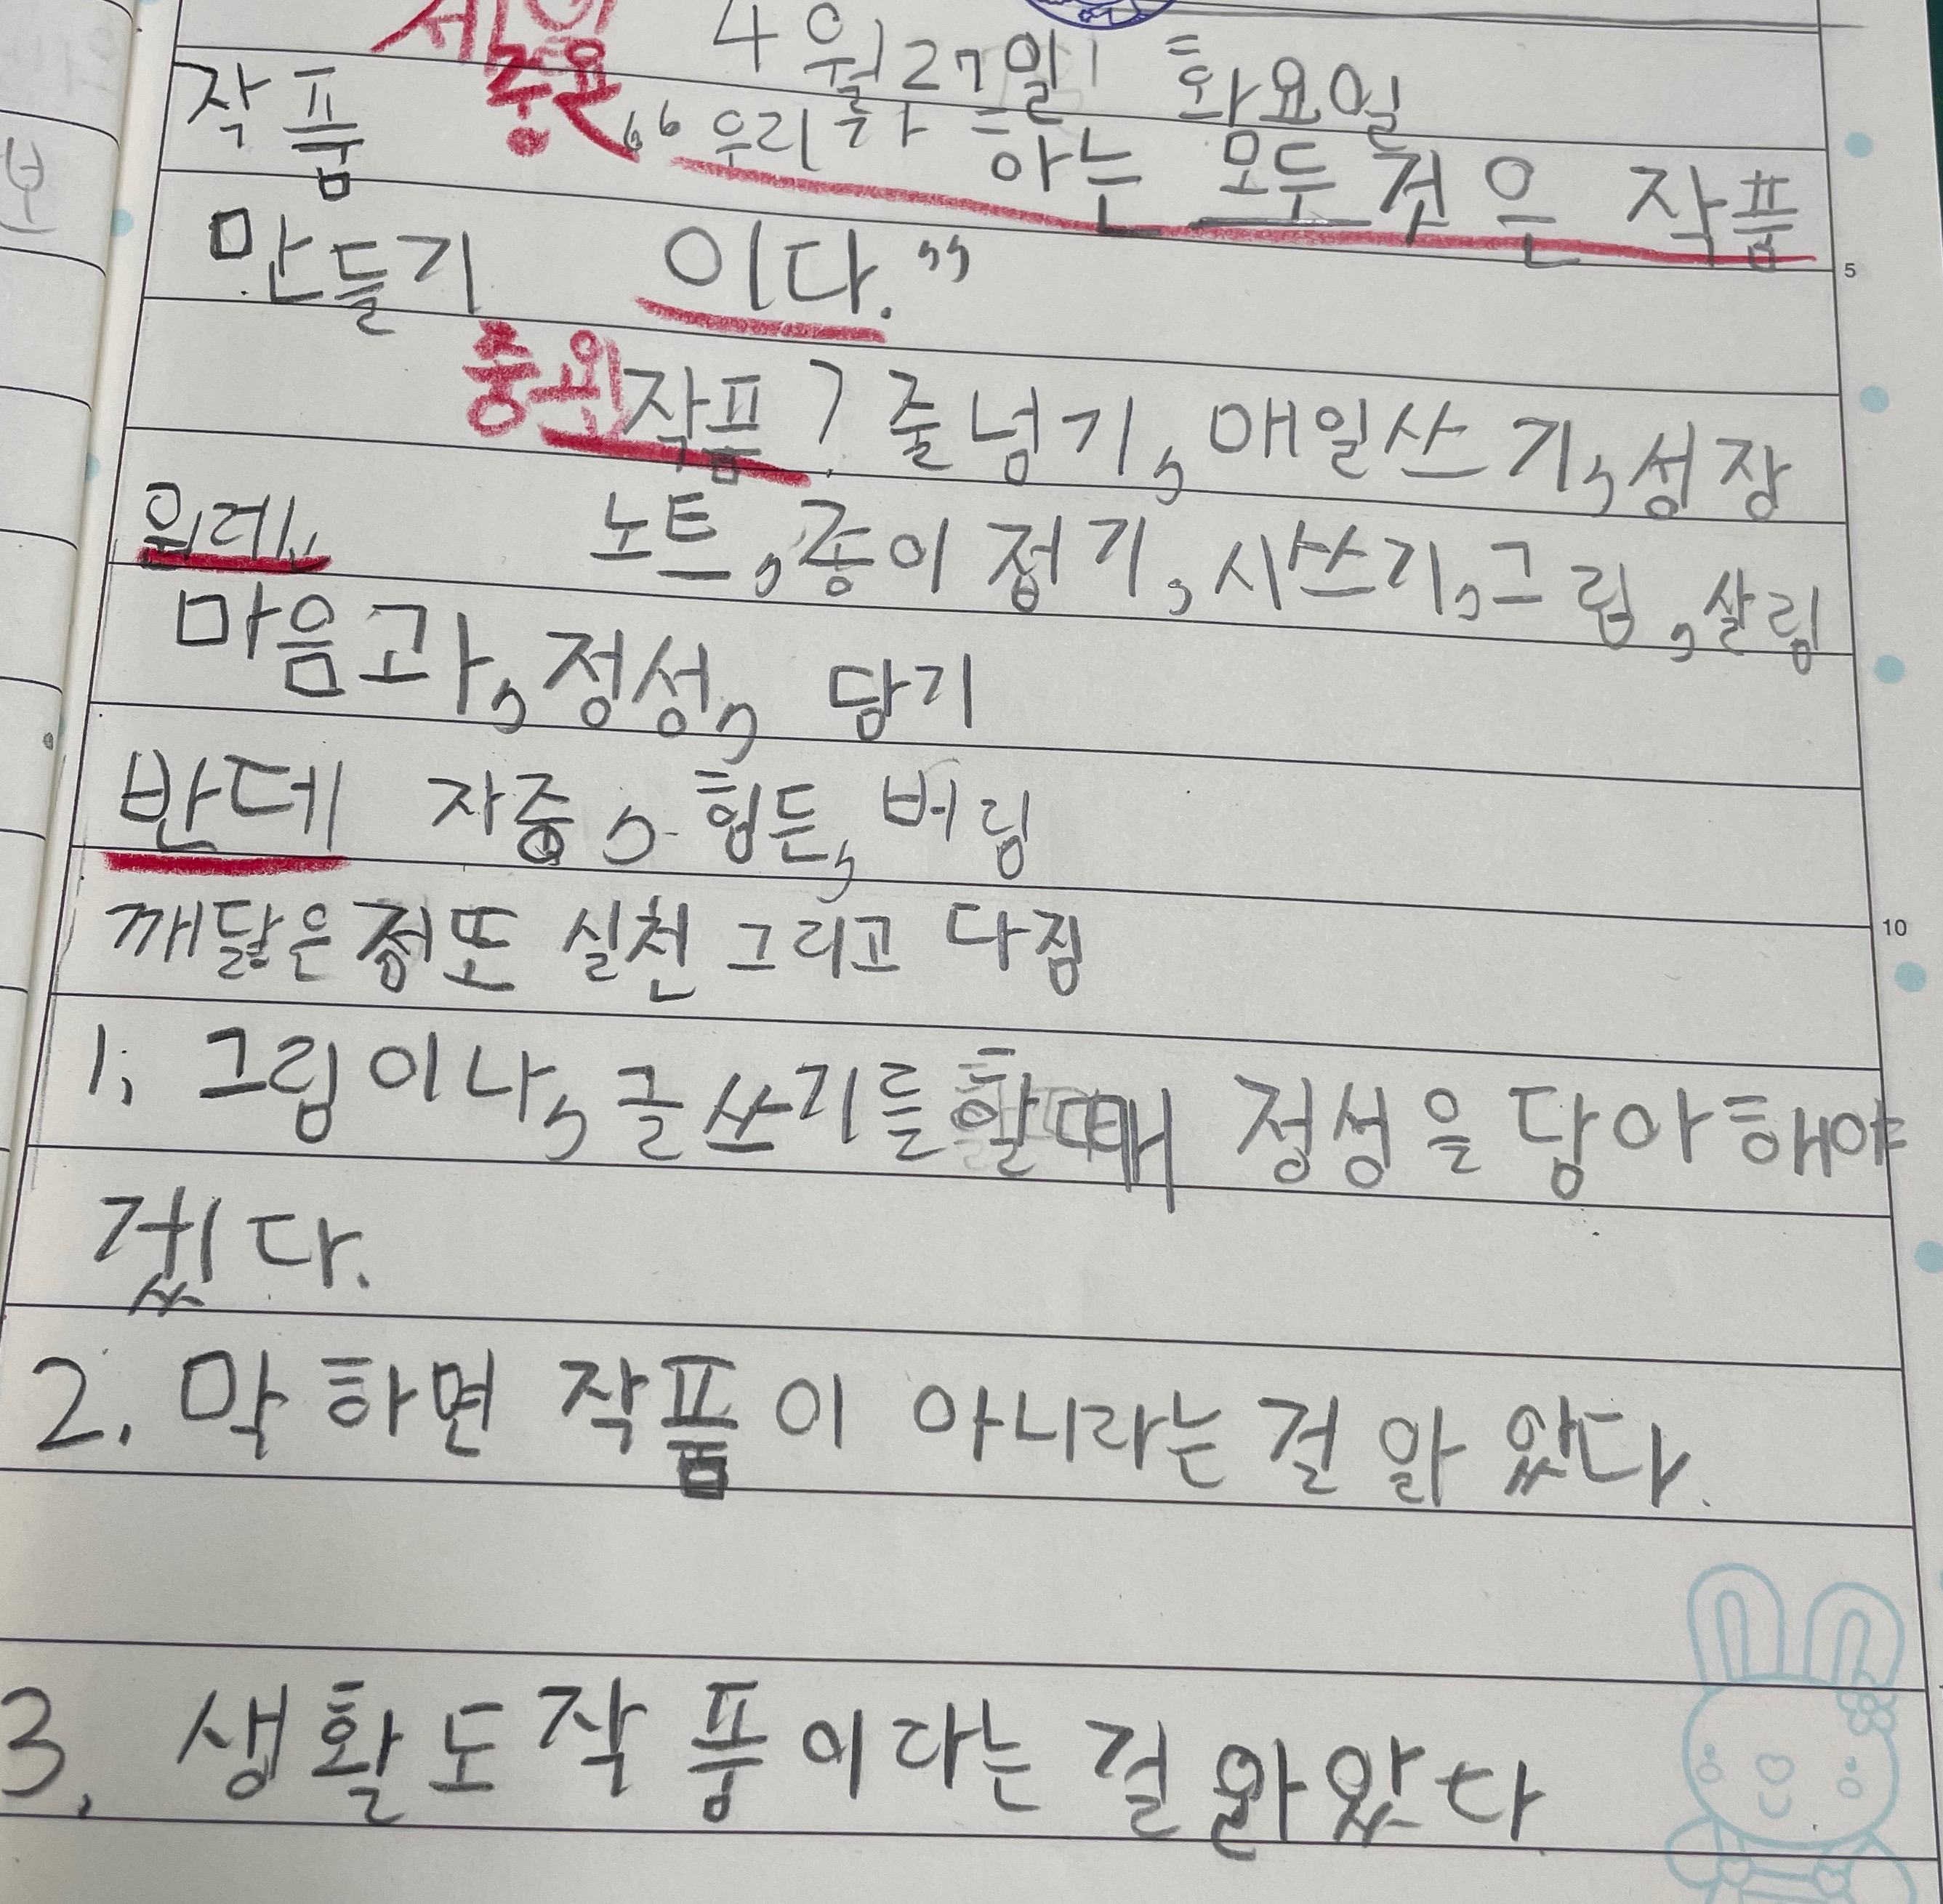 제일
4월27일 화요일
중요
작품 “우리가 하는 모두것은 작품
만들기 이다.”
중요 작품? 줄넘기, 매일쓰기, 성장
노트, 종이접기, 시쓰기, 그림, 살림
마음과, 정성, 담기
반데 자증, 힘든, 버림
깨닳은 점또 실천 그리고 다짐
1, 그림이나, 글쓰기를할때 정성을 담아해야
겠다.
2. 막 하면 작품이 아니라는 걸 알았다.
3. 생활도 작품이다는 걸 알았다
5
10